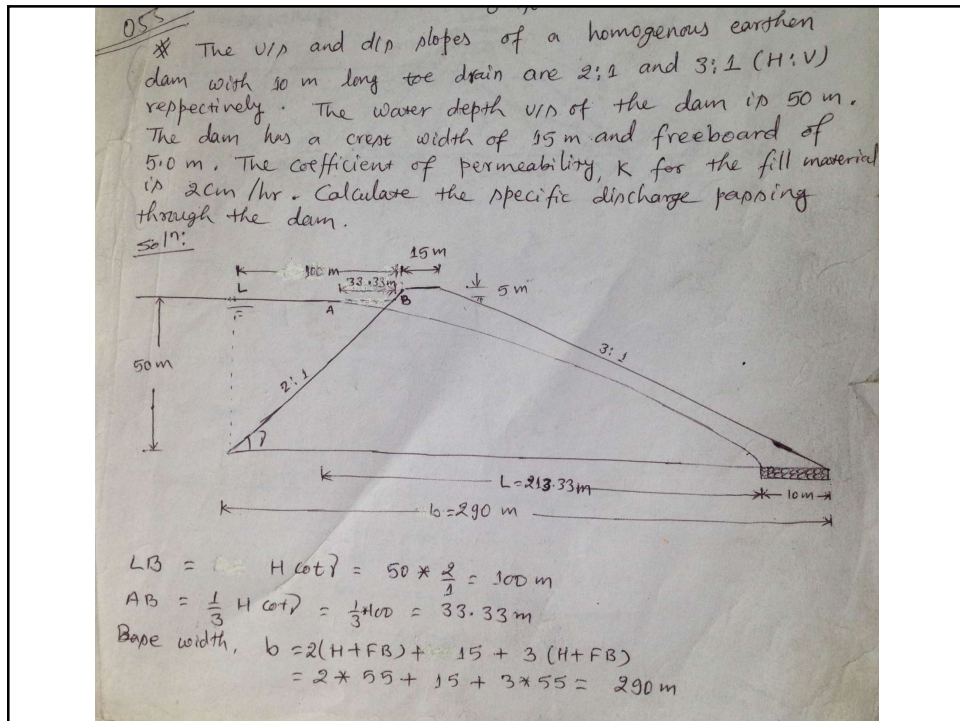 055
* The U/s and d/s slopes of a homogenous earthen
dam with 10 m long toe drain are 2:1 and 3:1 (H:V)
respectively. The water depth U/s of the dam is 50 m.
The dam has a crest width of 15 m and freeboard of
5.0 m. The coefficient of permeability, K for the fill material
is 2cm/hr. Calculate the specific discharge passing
through the dam.
Soln:
15 m
100 m
L
33.33m
B
5 m
A
50 m
2:1
3:1
L=213.33m
10m
b=290 m
LB = H cotγ = 50 * 2/1 = 100 m
AB = 1/3 H cotγ = 1/3*100 = 33.33 m
Base width, b = 2(H+FB) + 15 + 3 (H+FB)
= 2 * 55 + 15 + 3*55 = 290 m